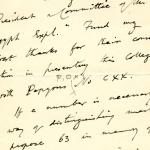 President & Committee of the
Egypt Expl. Fund my
great thanks for their
in presenting this College
with Papyrus No CXX.
If a number is necessary
way of distinguishing
propose 63 in many of